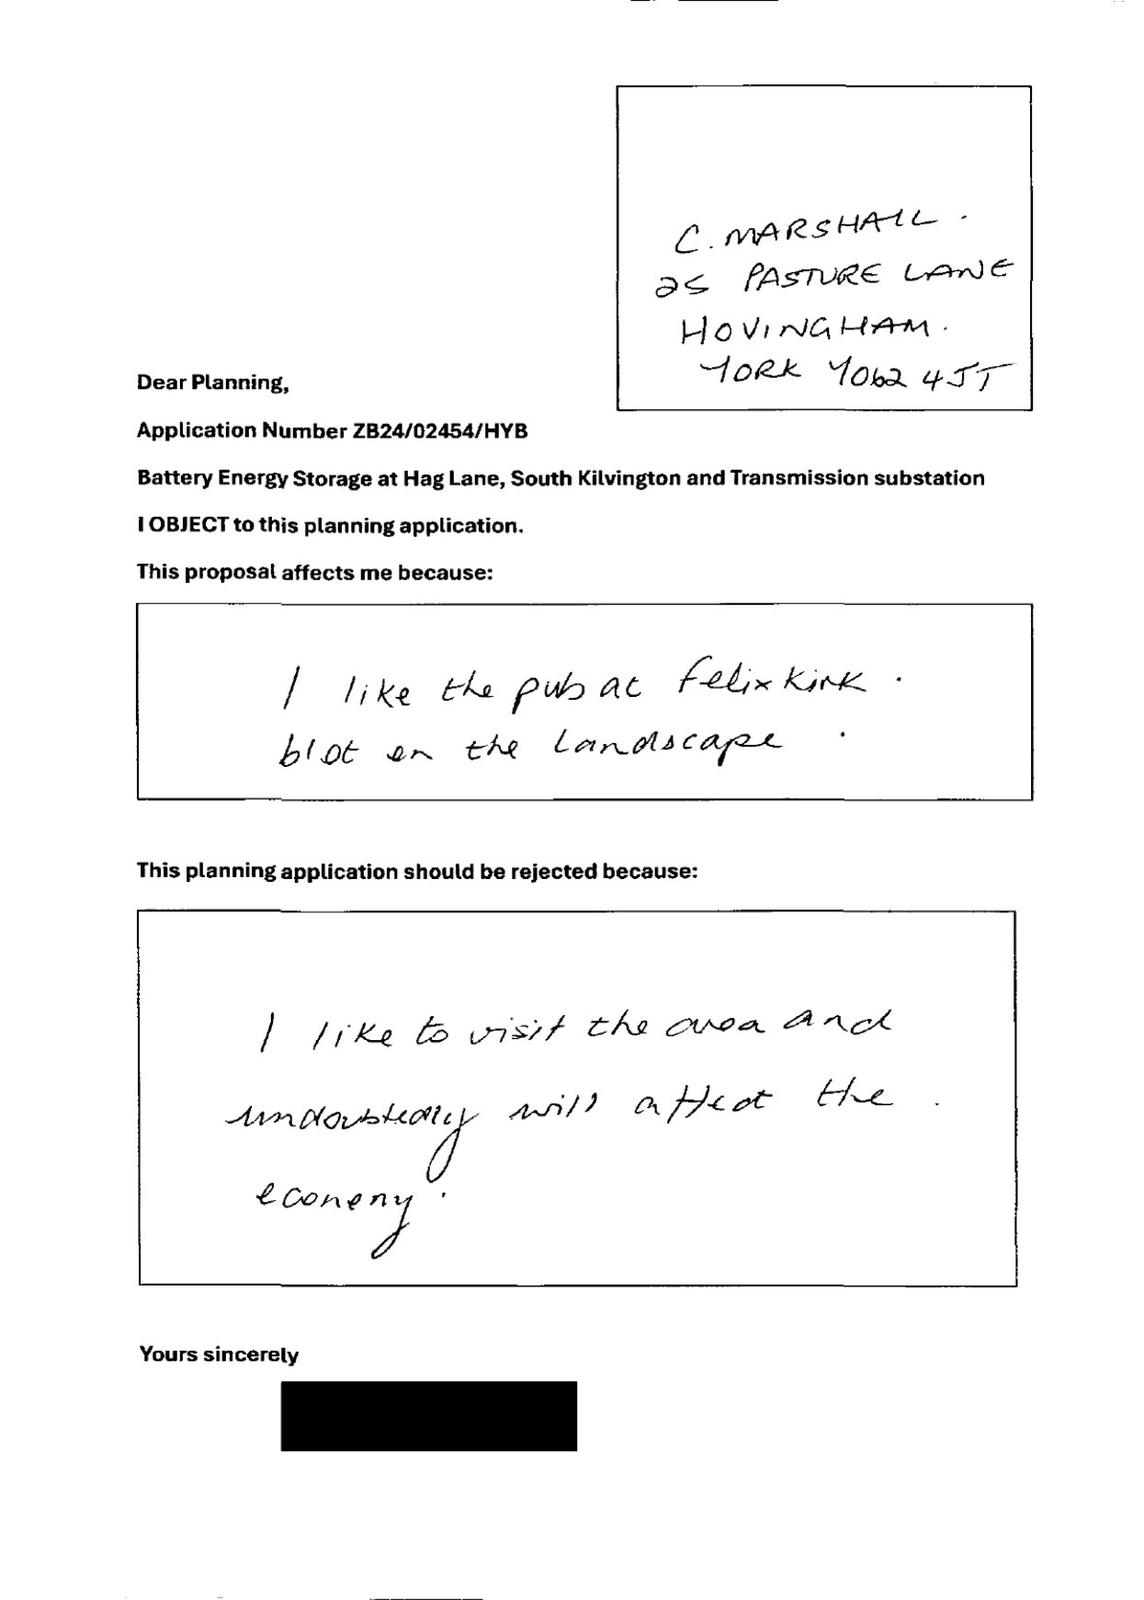 C. MARSHALL.
25 PASTURE LANE
HOVINGHAM.
YORK YO62 4JT
Dear Planning,
Application Number ZB24/02454/HYB
Battery Energy Storage at Hag Lane, South Kilvington and Transmission substation
I OBJECT to this planning application.
This proposal affects me because:
I like the pub at Felixkirk.
blot on the landscape.
This planning application should be rejected because:
I like to visit the area and
undoubtedly will affect the.
economy.
Yours sincerely